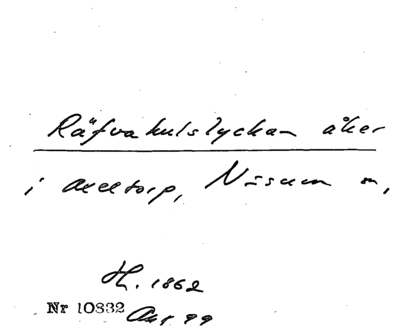 Räfvakulslyckan åker
i Axeltorp, Nösum m,
H. 1862
Nr 10832
Akt 99